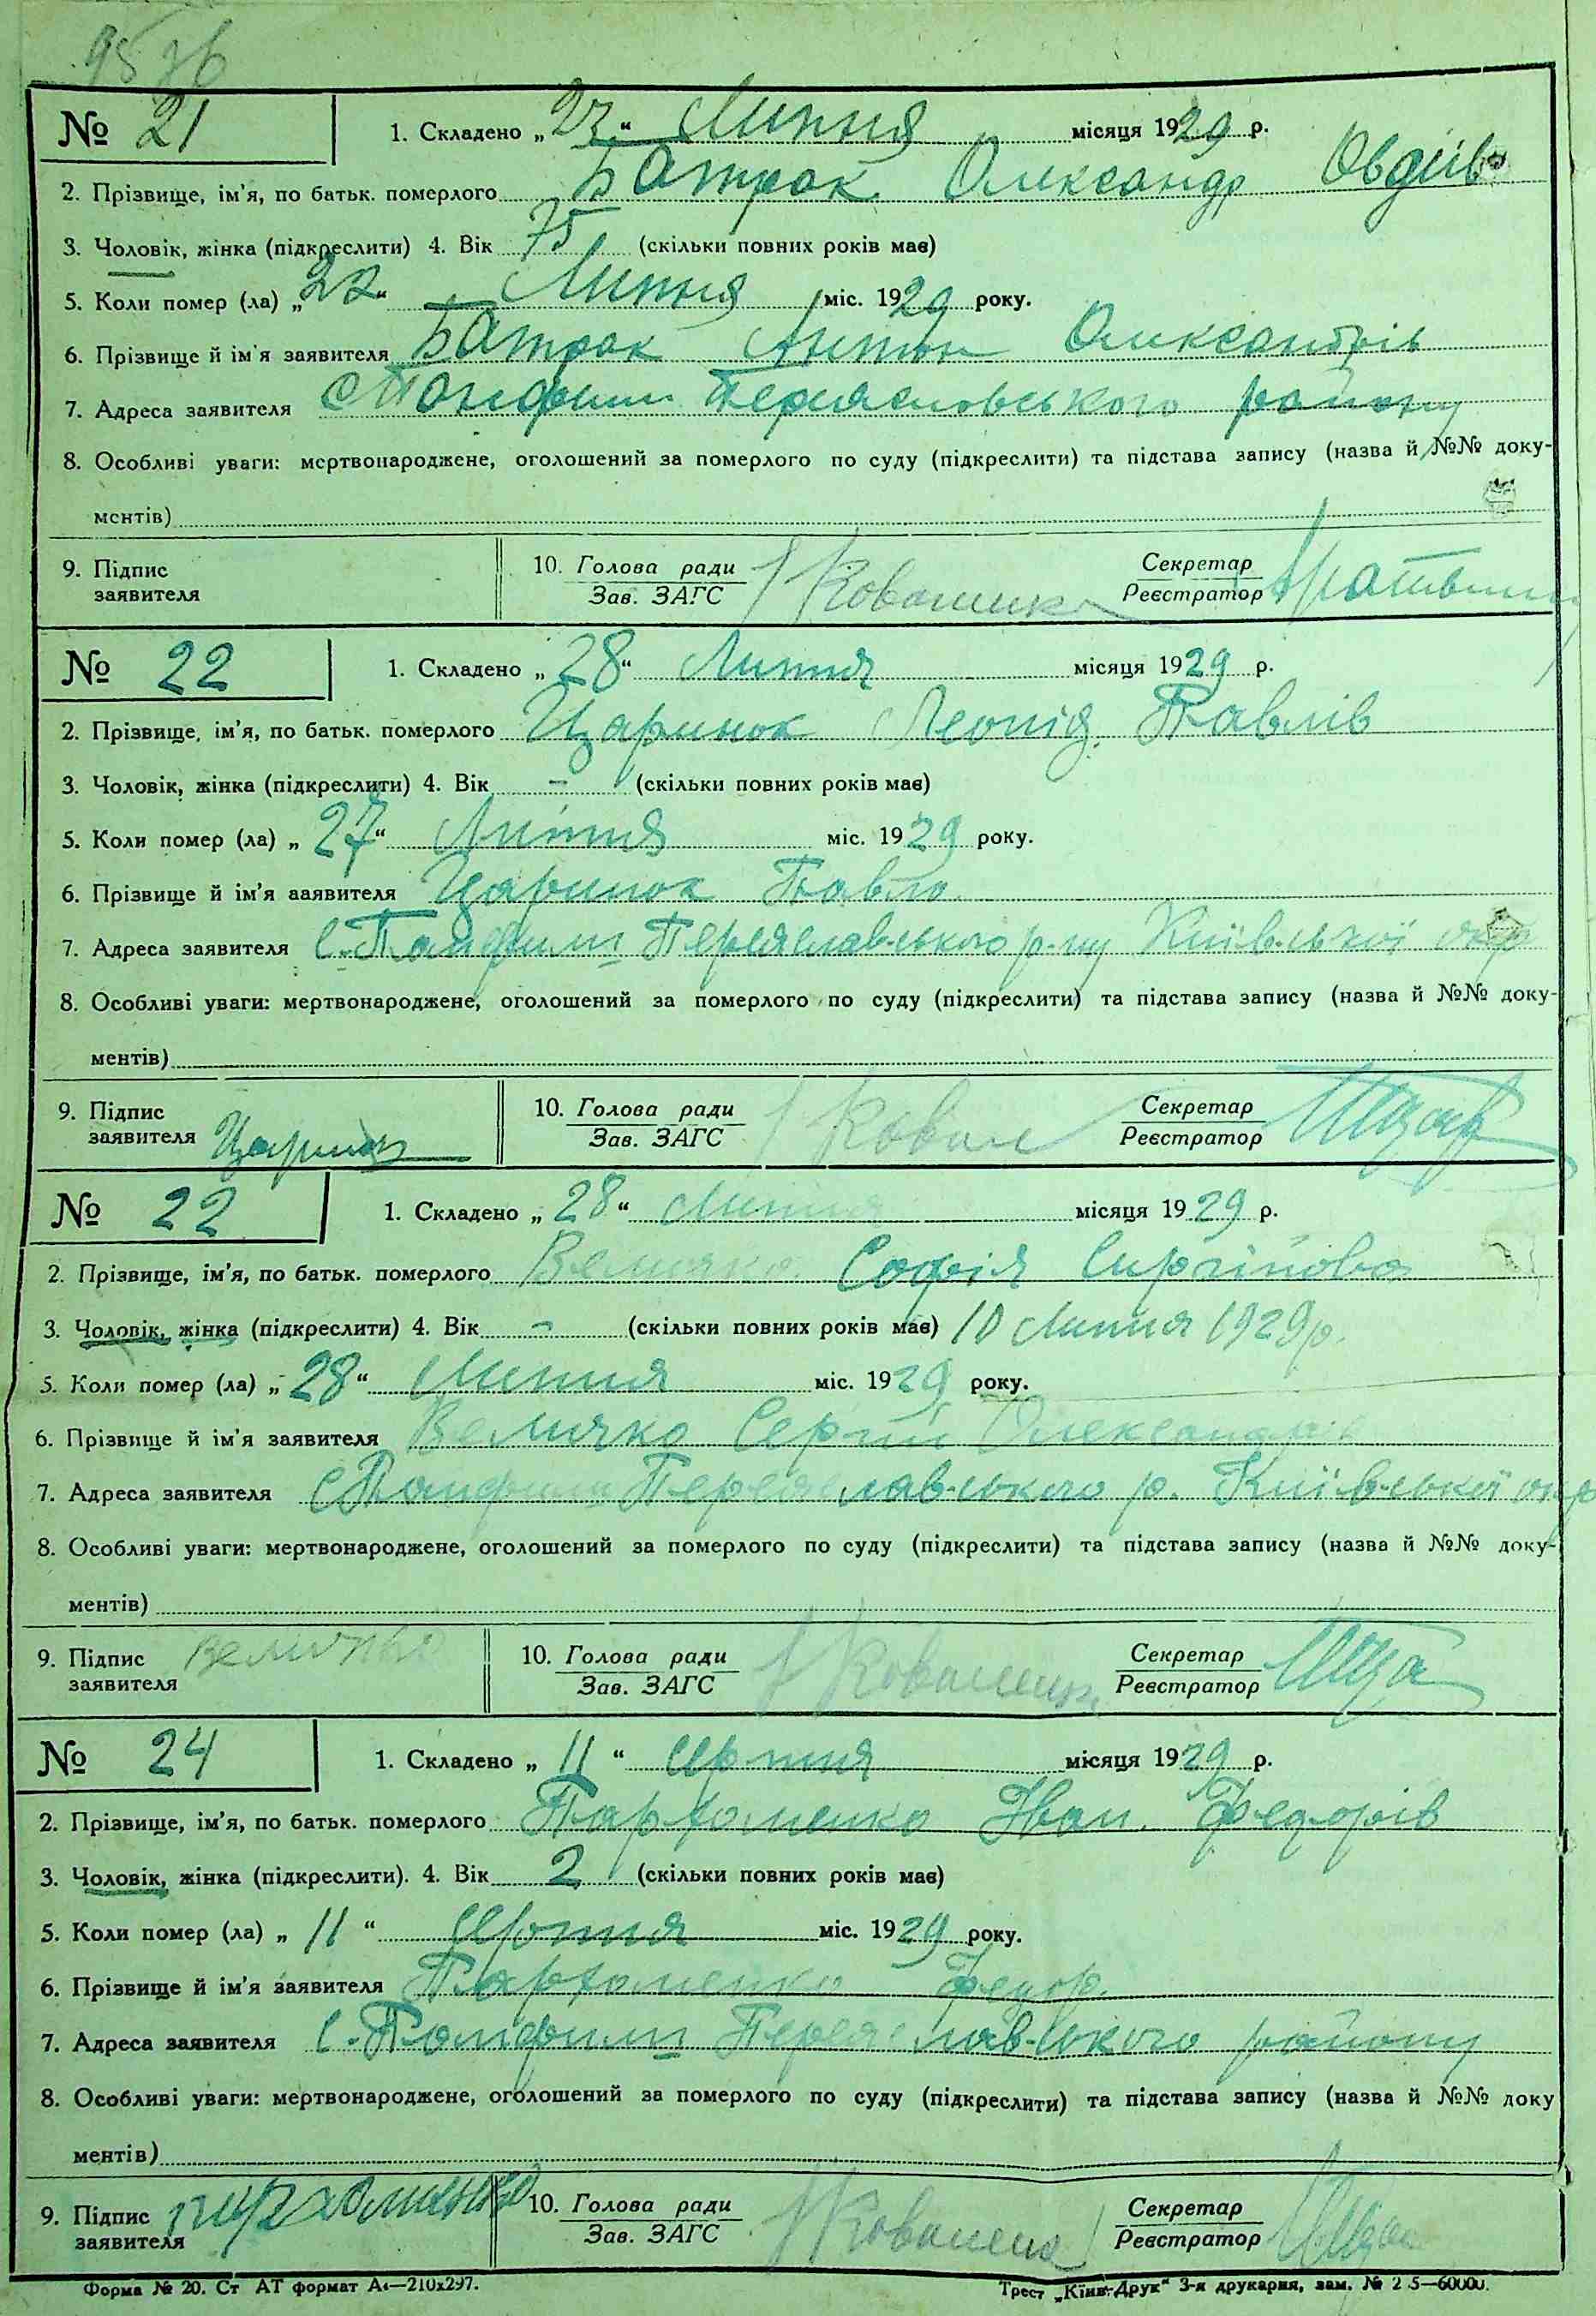 95 зв
№ 21 1. Складено „27“ Липня місяця 1929 р.
2. Прізвище, ім'я, по батьк. померлого Батрак Олександр Овдіїв
3. Чоловік, жінка (підкреслити) 4. Вік 75 (скільки повних років має)
5. Коли помер (ла) „27“ Липня міс. 1929 року.
6. Прізвище й ім'я заявителя Батрак Антон
7. Адреса заявителя с Панфили району
8. Особливі уваги: мертвонароджене, оголошений за померлого по суду (підкреслити) та підстава запису (назва й №№ доку-
ментів)
9. Підпис заявителя 10. Голова ради Зав. ЗАГС Секретар Реєстратор
№ 22 1. Складено „28“ Липня місяця 1929 р.
2. Прізвище, ім'я, по батьк. померлого Царинок Леонід Павлів
3. Чоловік, жінка (підкреслити) 4. Вік - (скільки повних років має)
5. Коли помер (ла) „27“ Липня міс. 1929 року.
6. Прізвище й ім'я заявителя Царинок Павло
7. Адреса заявителя с. Панфили Переяславського р-ну Київської окр
8. Особливі уваги: мертвонароджене, оголошений за померлого по суду (підкреслити) та підстава запису (назва й №№ доку-
ментів)
9. Підпис заявителя Царинок 10. Голова ради Зав. ЗАГС Секретар Реєстратор
№ 22 1. Складено „28“ Липня місяця 1929 р.
2. Прізвище, ім'я, по батьк. померлого Величко Софія Сиргійова
3. Чоловік, жінка (підкреслити) 4. Вік - (скільки повних років має) 10 Липня 1929р.
5. Коли помер (ла) „28“ Липня міс. 1929 року.
6. Прізвище й ім'я заявителя Величко Сергій Олександрів
7. Адреса заявителя с Панфили Переяславського р. Київської окр
8. Особливі уваги: мертвонароджене, оголошений за померлого по суду (підкреслити) та підстава запису (назва й №№ доку-
ментів)
9. Підпис заявителя Величко 10. Голова ради Зав. ЗАГС Секретар Реєстратор
№ 24 1. Складено „11“ Серпня місяця 1929 р.
2. Прізвище, ім'я, по батьк. померлого Пархоменко Іван Федорів
3. Чоловік, жінка (підкреслити). 4. Вік 2 (скільки повних років має)
5. Коли помер (ла) „11“ Серпня міс. 1929 року.
6. Прізвище й ім'я заявителя Пархоменко Федор.
7. Адреса заявителя с. Панфили Переяславського району
8. Особливі уваги: мертвонароджене, оголошений за померлого по суду (підкреслити) та підстава запису (назва й №№ доку
ментів)
9. Підпис заявителя 10. Голова ради Зав. ЗАГС Секретар Реєстратор
Форма № 20. Ст АТ формат А4—210х297. Трест „Київ-Друк“ 3-я друкарня, зам. №